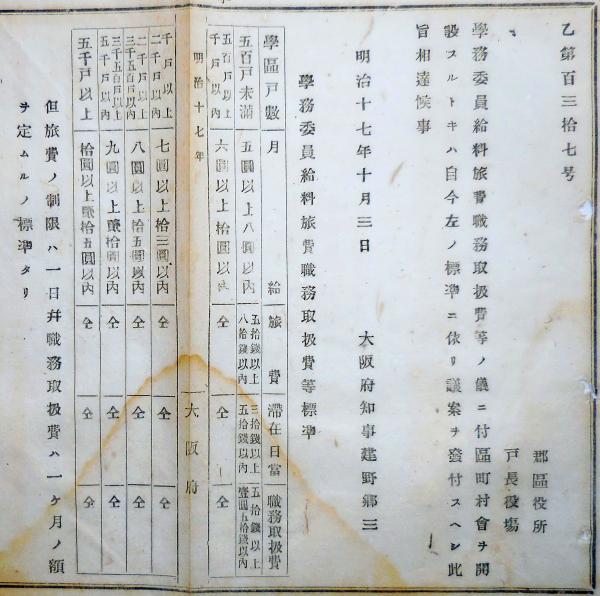 乙第百三拾七号
郡區役所
戸長役塲
學務委員給料旅費職務取扱費等ノ儀ニ付區町村會ヲ開
設スルトキハ自今左ノ標準ニ依リ議案ヲ發付スヘシ此
旨相達候事
明治十七年十月三日 大阪府知事建野郷三
學務委員給料旅費職務取扱費等標準
學區戸數 月給 旅費 滯在日當 職務取扱費
五百戸未滿 五圓以上八圓以內 五拾錢以上八拾錢以內 三拾錢以上五拾錢以內 五拾錢以上壹圓五拾錢以內
五百戸以上千戸以內 六圓以上拾圓以內 仝 仝 仝
明治十七年 大阪府
千戸以上二千戸以內 七圓以上拾三圓以內 仝 仝 仝
二千戸以上三千五百戸以內 八圓以上拾五圓以內 仝 仝 仝
三千五百戸以上五千戸以內 九圓以上貳拾圓以內 仝 仝 仝
五千戸以上 拾圓以上貳拾五圓以內 仝 仝 仝
但旅費ノ制限ハ一日幷職務取扱費ハ一ケ月ノ額
ヲ定ムルノ標準タリ